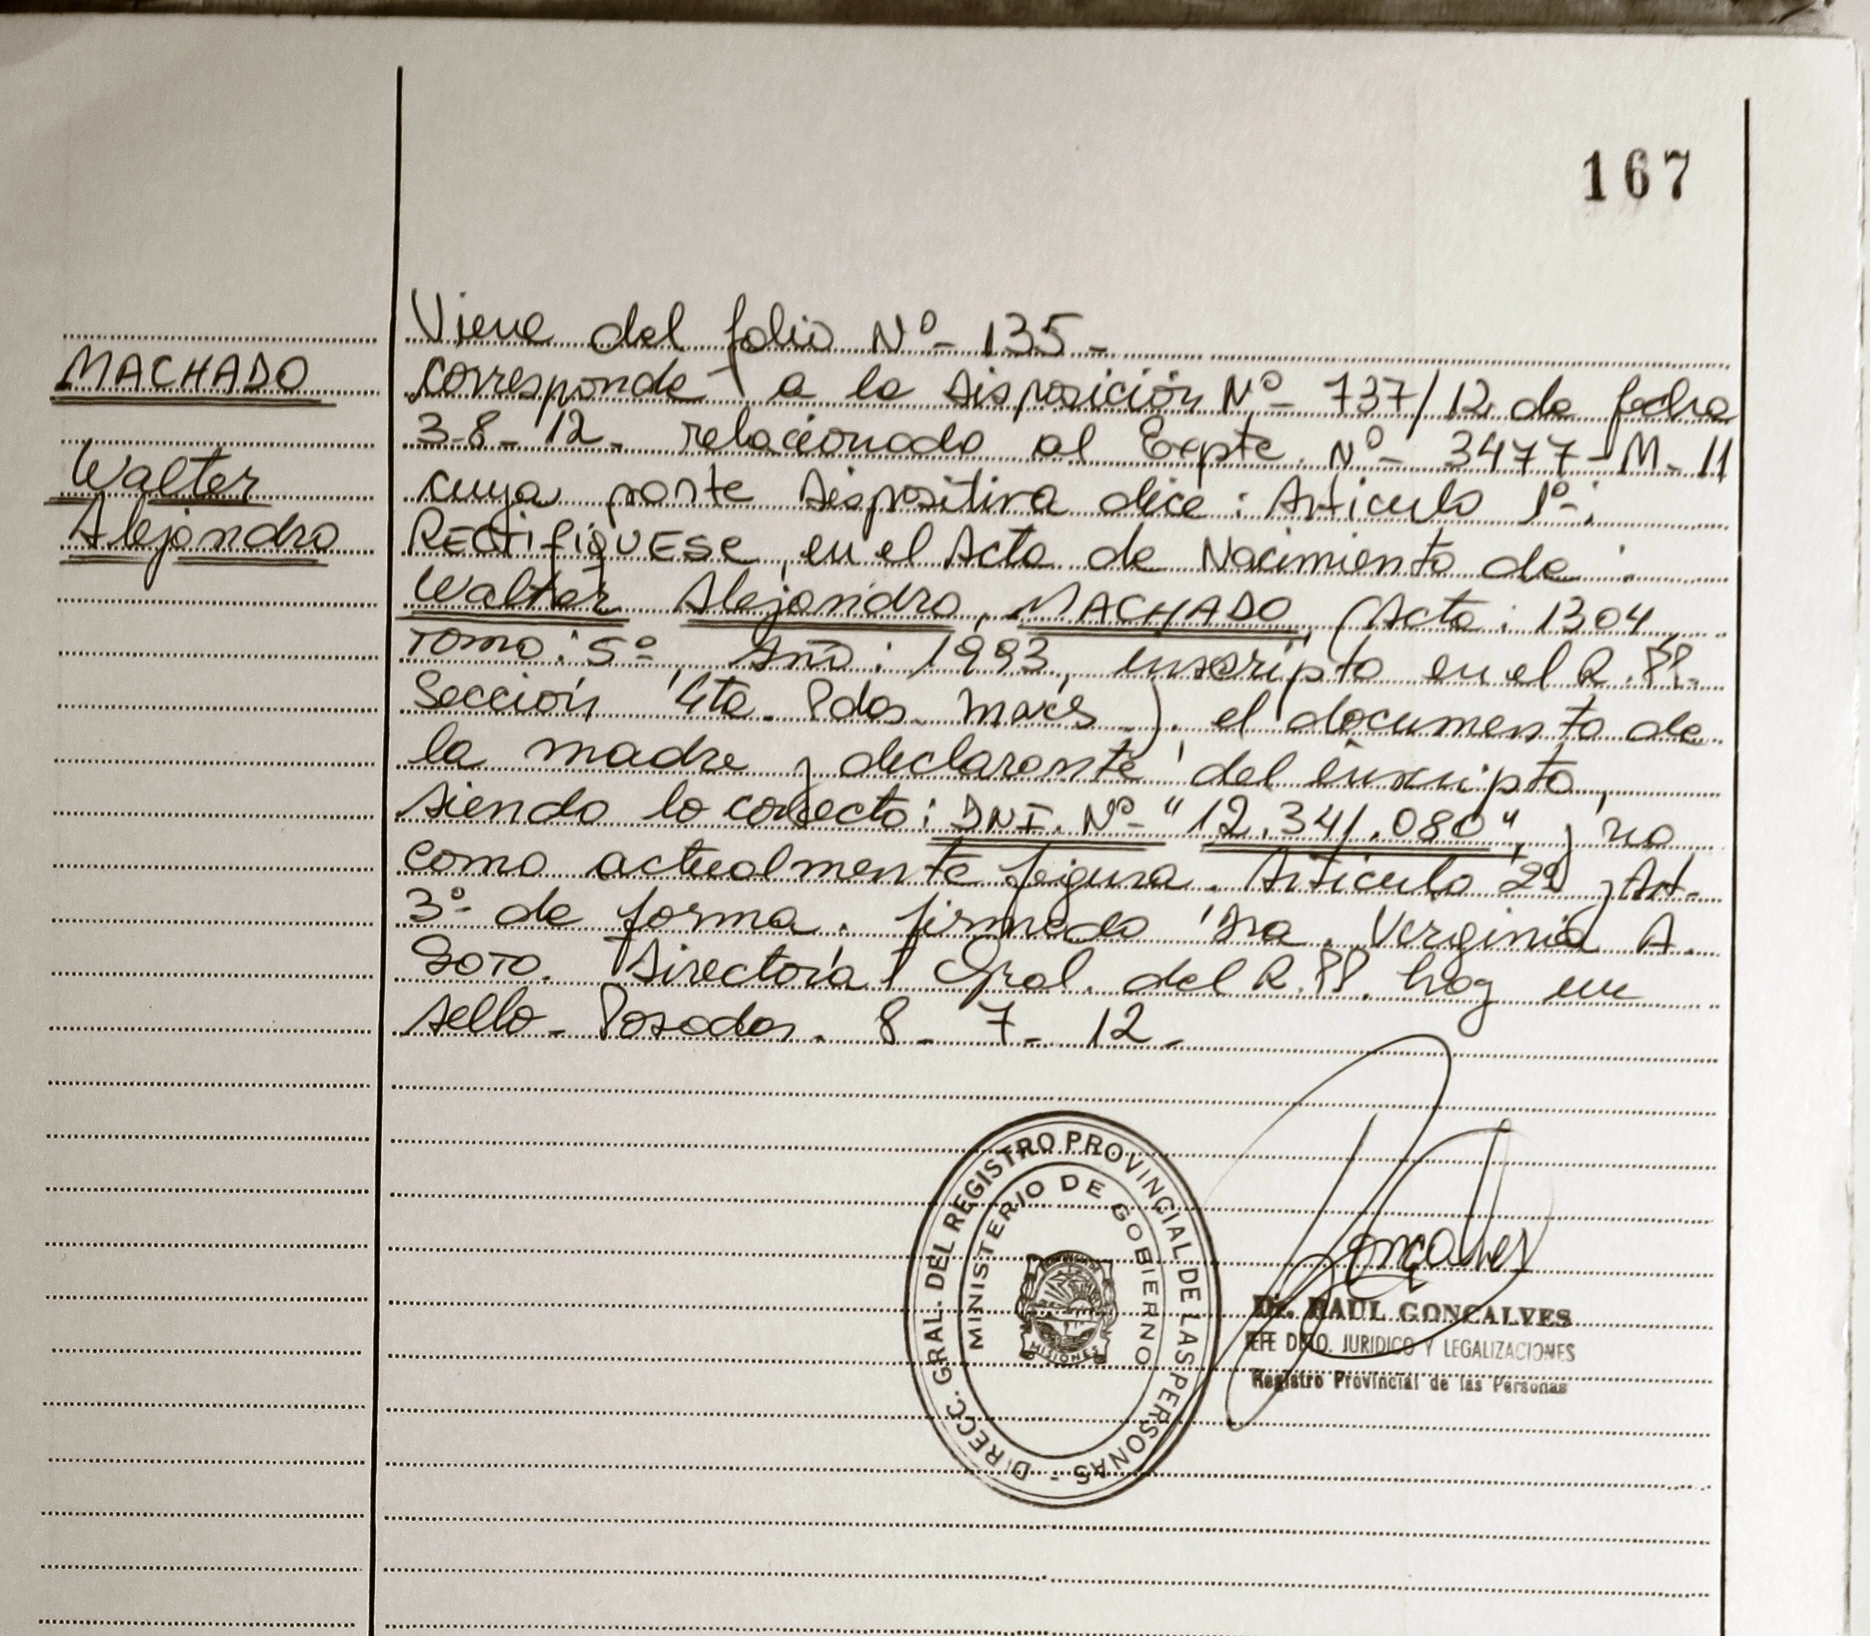 167
Viene del folio Nº- 135-
MACHADO
corresponde a la Disposición Nº- 737/12 de fecha
3-8-12- relacionado al Expte. Nº- 3477-M-11
Walter
cuya parte Dispositiva dice: Articulo 1º-:
Alejandro
RECTIFIQUESE, en el Acta de Nacimiento de:
Walter Alejandro, MACHADO, (Acta: 1304,
Tomo: 5º, Año: 1993, inscripto en el R.PP.
Sección 4ta. Pdas. Mnes). el documento de
la madre y declarante del inscripto,
siendo lo correcto: DNI. Nº- "12.341.080", y no
como actualmente figura. Articulo 2º y Art-
3º- de forma. firmado Dra. Verginia A.
Soto. Directora Gral. del R.PP. hay un
sello- Posadas. 8-7-12-
DIRECC. GRAL. DEL REGISTRO PROVINCIAL DE LAS PERSONAS -
MINISTERIO DE GOBIERNO
MISIONES
Goncalves
Dr. RAUL GONCALVES
JEFE DPTO. JURIDICO Y LEGALIZACIONES
Registro Provincial de las Personas